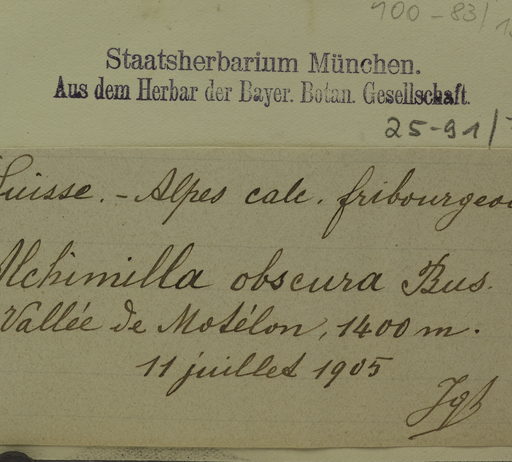 100-83/
Staatsherbarium München.
Aus dem Herbar der Bayer. Botan. Gesellschaft.
25-91/
Suisse. - Alpes calc. fribourgeoi
Alchimilla obscura Bus.
Vallée de Motélon, 1400 m.
11 juillet 1905